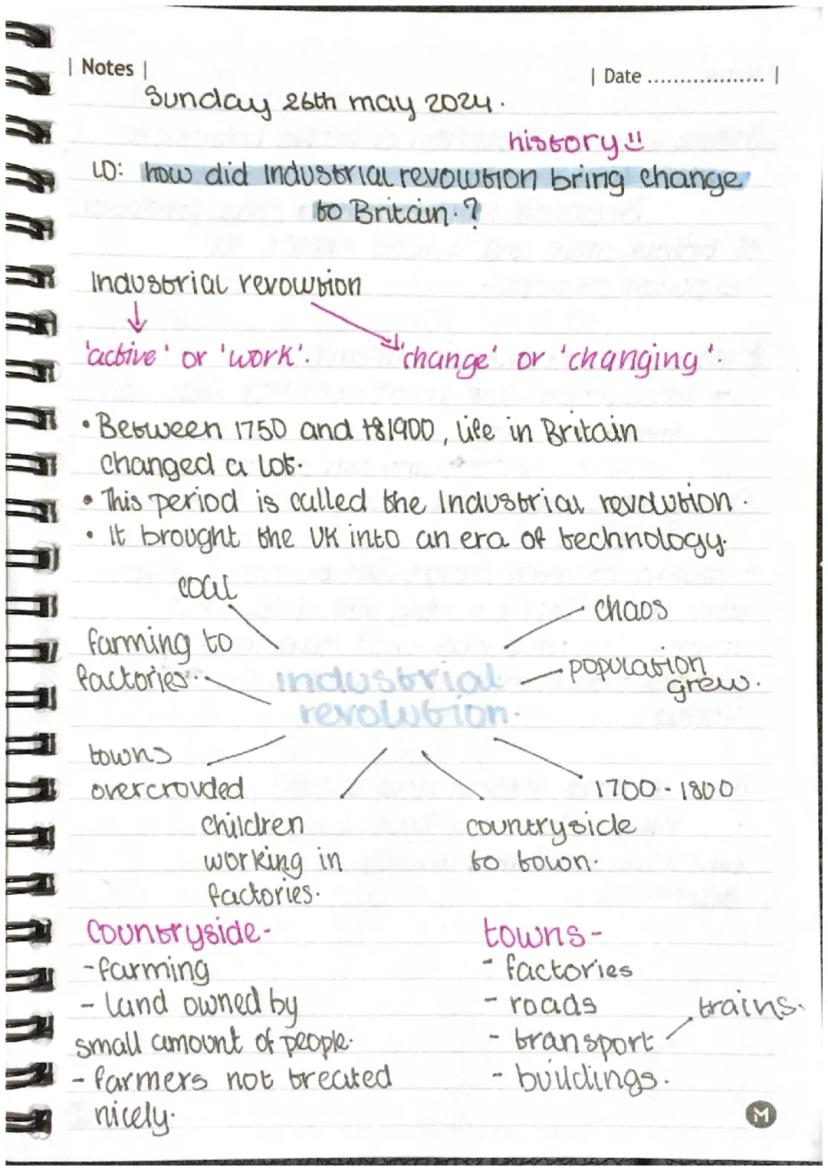 | Notes |
| Date .................. |
Sunday 26th may 2024.
history!!
LO: how did Industrial revolution bring change
to Britain.?
Industrial revolution
'active' or 'work'.
'change' or 'changing'.
• Between 1750 and 1900, life in Britain
changed a lot.
• This period is called the Industrial revolution.
• It brought the UK into an era of technology.
coal
chaos
farming to
factories.
population
grew.
industrial
revolution.
towns
overcrouded
1700 - 1800
children
working in
factories.
countryside
to town.
Countryside-
- farming
- land owned by
small amount of people.
- farmers not treated
nicely.
towns-
- factories
- roads
- transport
trains.
- buildings.
M